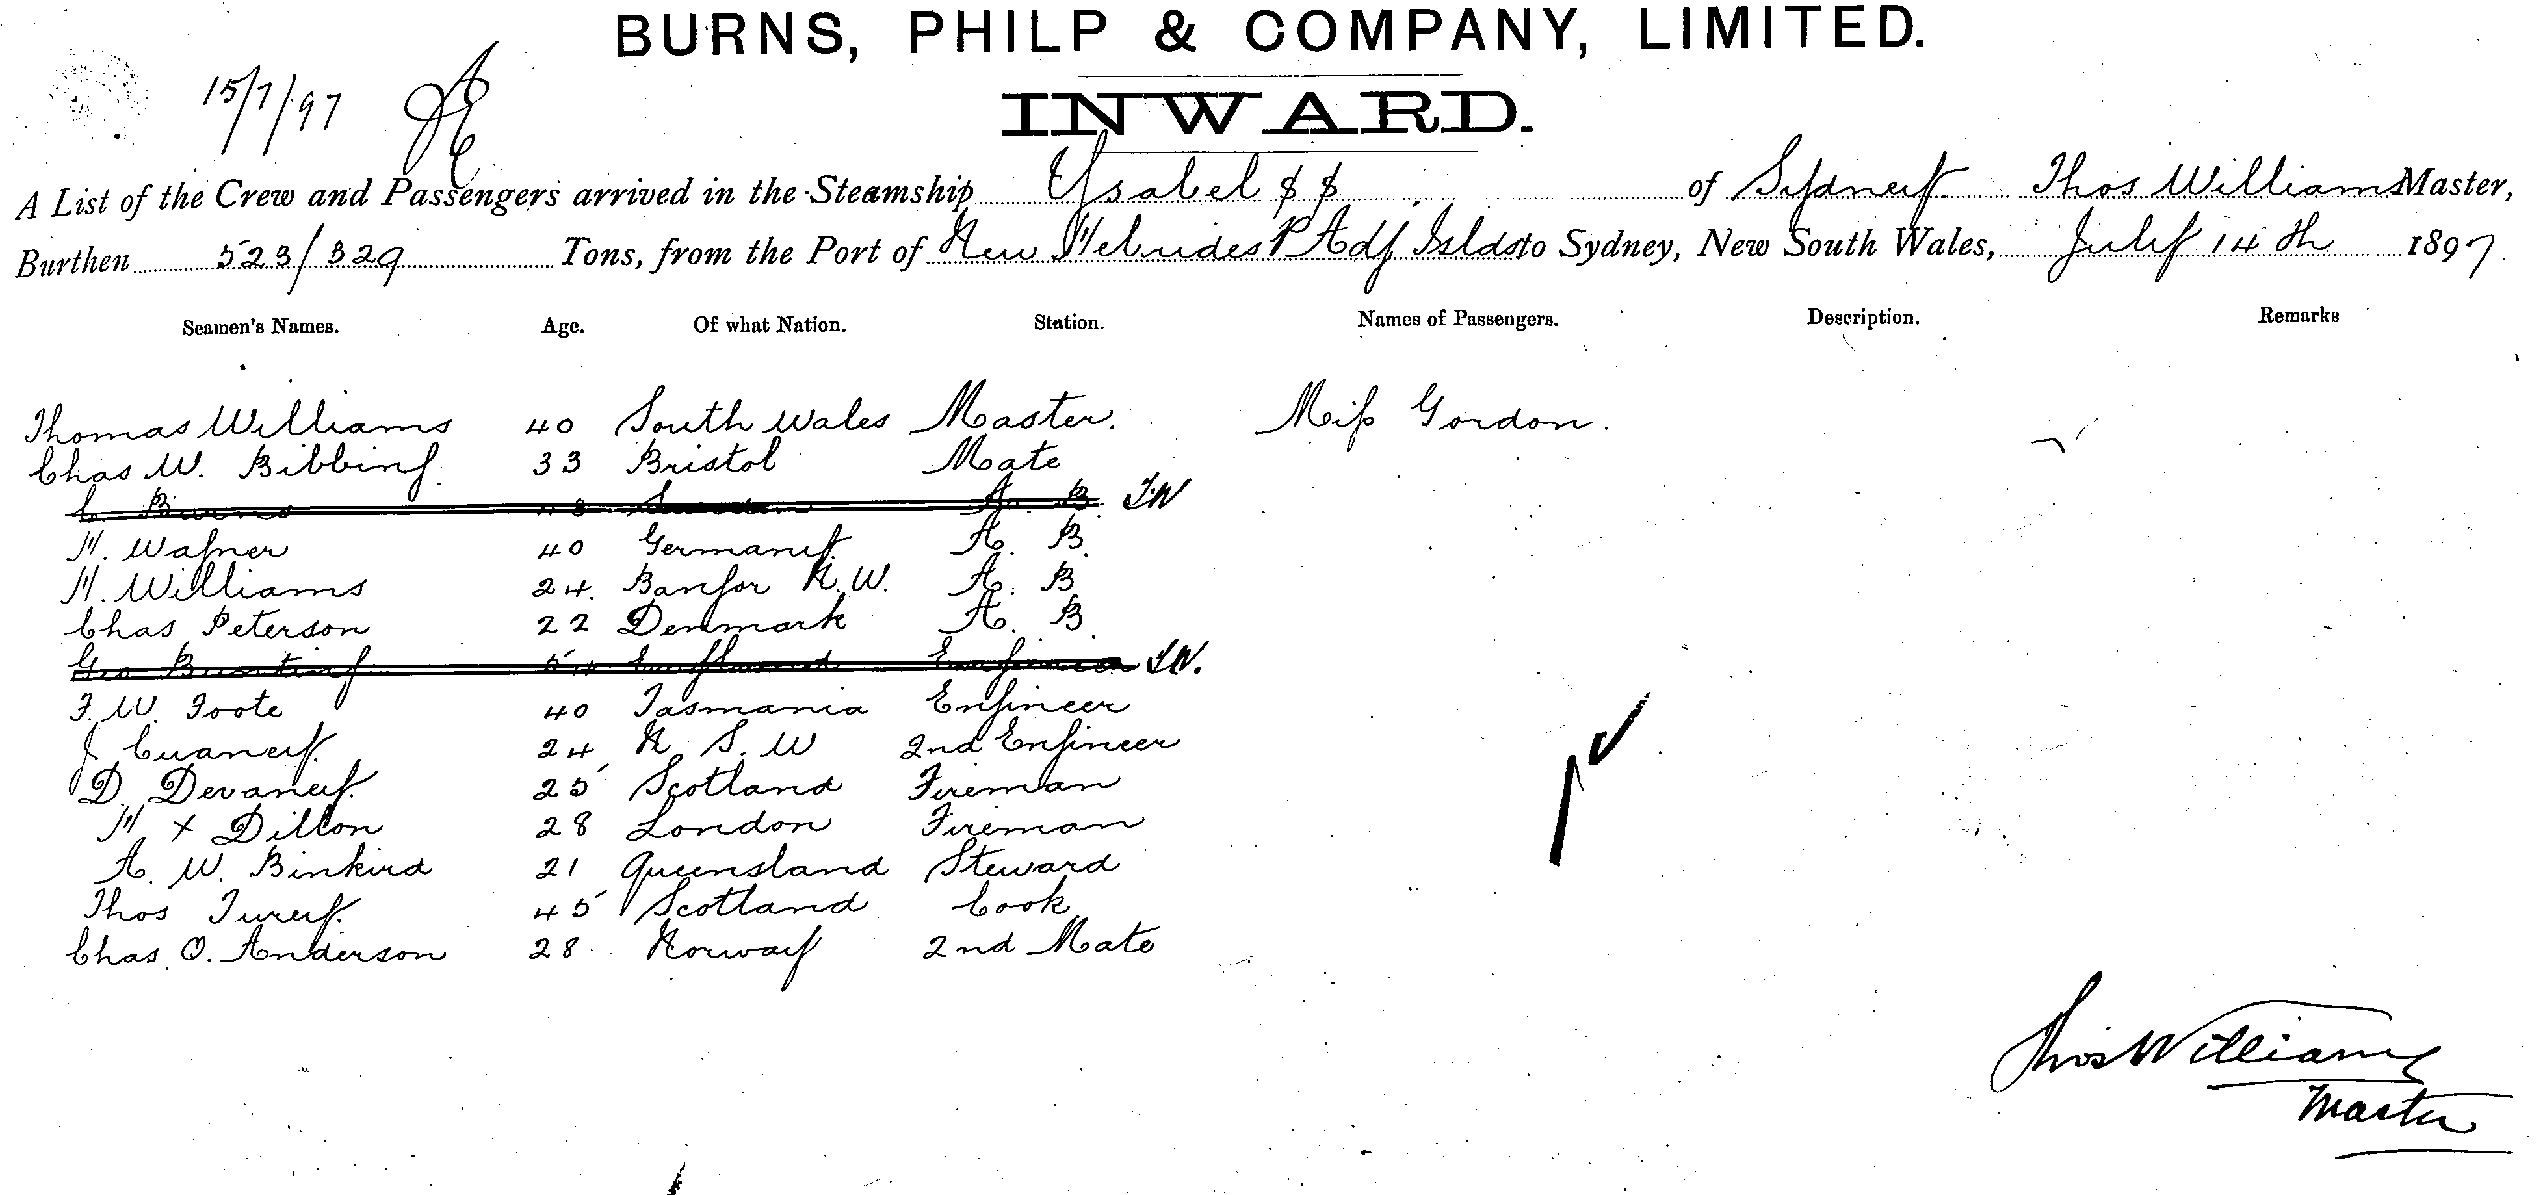 BURNS, PHILP & COMPANY, LIMITED.
INWARD.
15/7/97
A List of the Crew and Passengers arrived in the Steamship Ysabel SS of Sydney Thos Williams Master,
Burthen 523/329 Tons, from the Port of New Hebrides & Adj Islds to Sydney, New South Wales, July 14th 1897
Seamen's Names. Age. Of what Nation. Station. Names of Passengers. Description. Remarks
Thomas Williams 40 South Wales Master. Miss Gordon.
Chas W. Bibbing 33 Bristol Mate
C. Burns 48 A. B. T.W
H. Wagner 40 Germany A. B.
H. Williams 24. Bangor N.W. A. B
Chas Peterson 22 Denmark A. B
Geo Bunting 54 England Engineer T.W.
F. W. Foote 40 Tasmania Engineer
J Cuaney. 24 N. S. W 2nd Engineer
D. Devaney. 25 Scotland Fireman
H x Dillon 28 London Fireman
A. W. Binkird 21 Queensland Steward
Thos Turey. 45 Scotland Cook
Chas. O. Anderson 28 Norway 2nd Mate
Thos Williams
Master